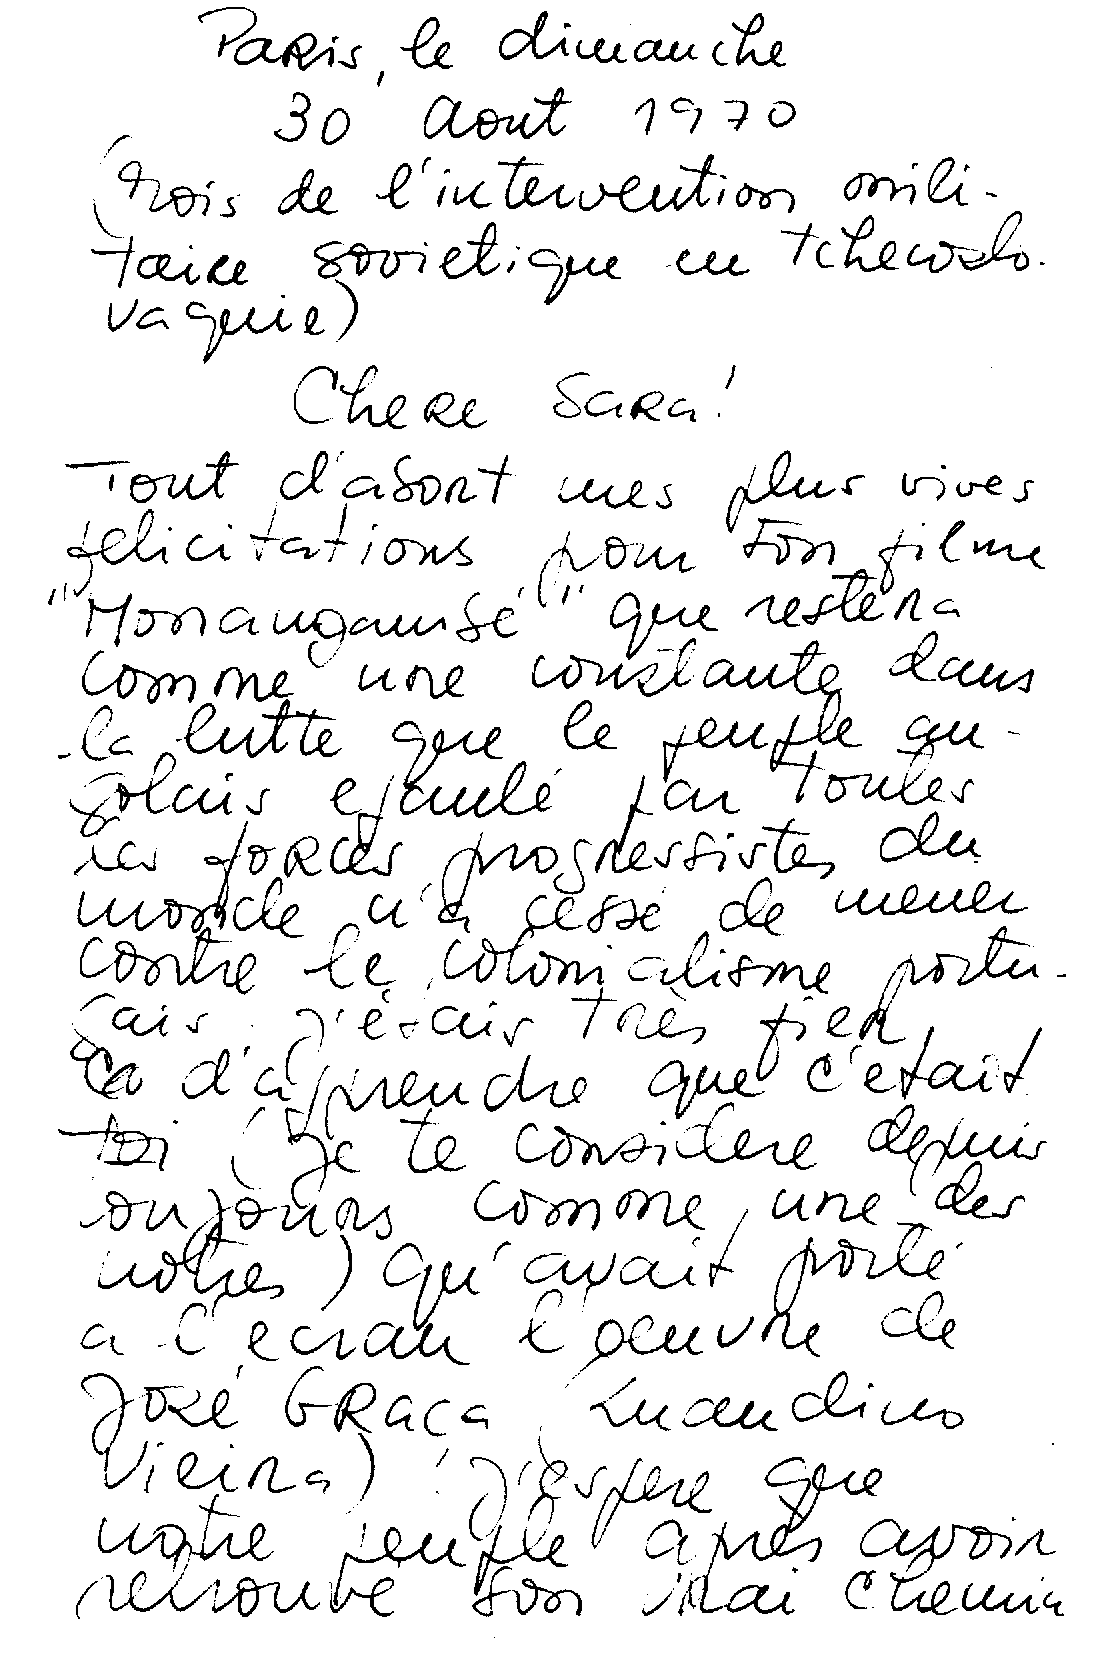 Paris, le dimanche
30 Aout 1970
(mois de l'intervention mili-
taire sovietique en tchecoslo-
vaquie)
Chere Sara!
Tout d'abort mes plus vives
felicitations pour ton filme
"Monangambé" que restera
comme une constante dans
la lutte que le peuple an-
golais epaulé par toutes
les forces progressistes du
monde n'a cessé de mener
contre le colonialisme portu-
gais. J'étais très fier
d'apprendre que c'était
toi (je te considere depuis
toujours comme une des
notres) qu'avait porté
a l'ecran l'oeuvre de
José Graça (Luandino
Vieira)! J'espere que
notre peuple après avoir
retrouvé son vrai chemin